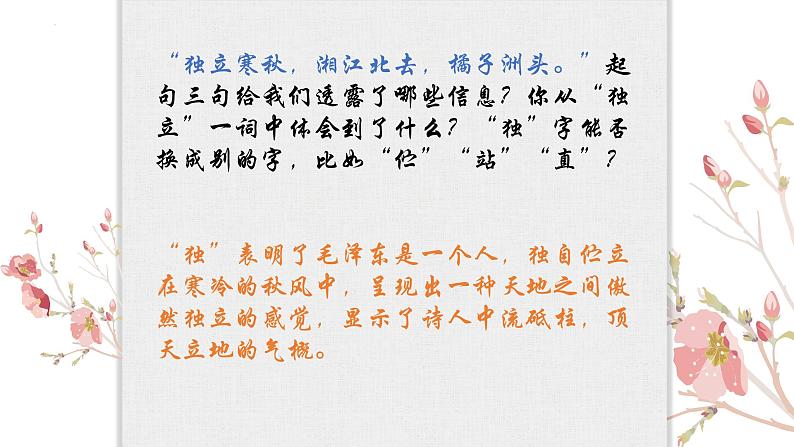 “独立寒秋，湘江北去，橘子洲头。”起
句三句给我们透露了哪些信息？你从“独
立”一词中体会到了什么？“独”字能否
换成别的字，比如“伫”“站”“直”？
“独”表明了毛泽东是一个人，独自伫立
在寒冷的秋风中，呈现出一种天地之间傲
然独立的感觉，显示了诗人中流砥柱，顶
天立地的气概。